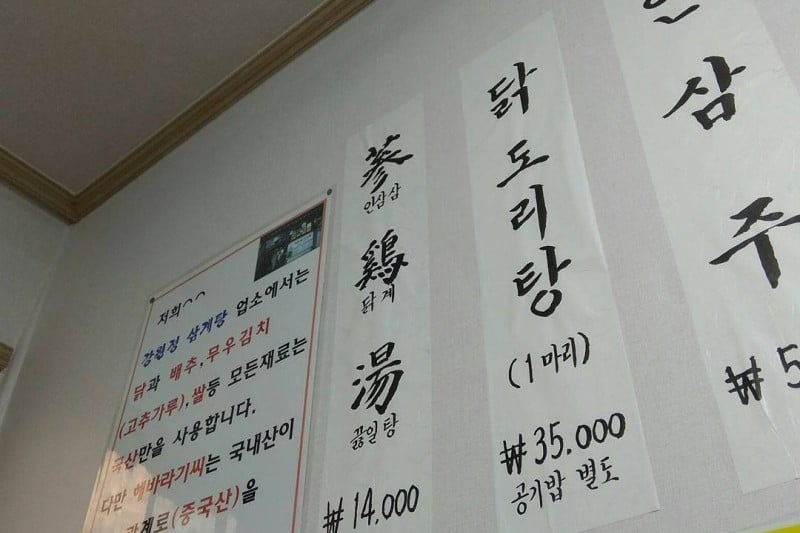 저희^^
강원정 삼계탕 업소에서는
닭과 배추,무우김치
(고추가루),쌀등 모든재료는
국산만을 사용합니다.
다만 해바라기씨는 국내산이
관계로(중국산)을
蔘
인삼삼
鷄
닭계
湯
끓일탕
₩14,000
닭도리탕
(1마리)
₩35.000
공기밥 별도
인삼주
₩5